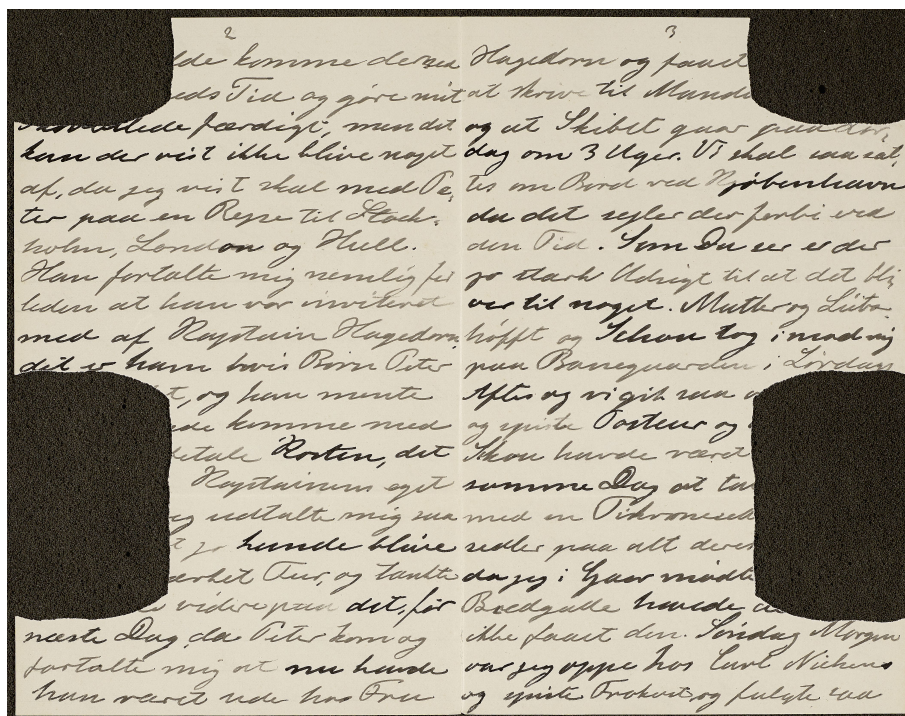 2
lde komme derned
eds Tid og gøre mit
færdigt, men det
kan der vist ikke blive noget
af, da jeg vist skal med Pe-
ter paa en Rejse til Stock-
holm, London og Hull.
Han fortalte mig nemlig for
leden at han var inviteret
med af Kaptain Hagedorn,
det er ham hvis Børn Peter
t, og han mente
de komme med
betale Kosten, det
Kaptainens eget
eg udtalte mig saa
t jo kunde blive
Tur, og tænkte
videre paa det, før
næste Dag da Peter kom og
fortalte mig at nu havde
han været ude hos Fru
3
Hagedorn og faaet
at skrive til Mand
og at Skibet gaar paa
dag om 3 Uger. Vi skal saa sæt-
tes om Bord ved Kjøbenhavn
da det sejler der forbi ved
den Tid. Som Du ser er der
jo stærk Udsigt til at det bli-
ver til noget. Mutter og Lüba
høfft og Schou tog imod mig
paa Banegaarden i Lørdags
Aftes og vi gik saa
og spiste Posteur og
Skou havde været
samme Dag at ta
med en Tikronesed
sedler paa alt deres
da jeg i Gaar mødte
Bredgade havde
ikke faaet den. Søndag Morgen
var jeg oppe hos Carl Nickens
og spiste Frokost og fulgte saa